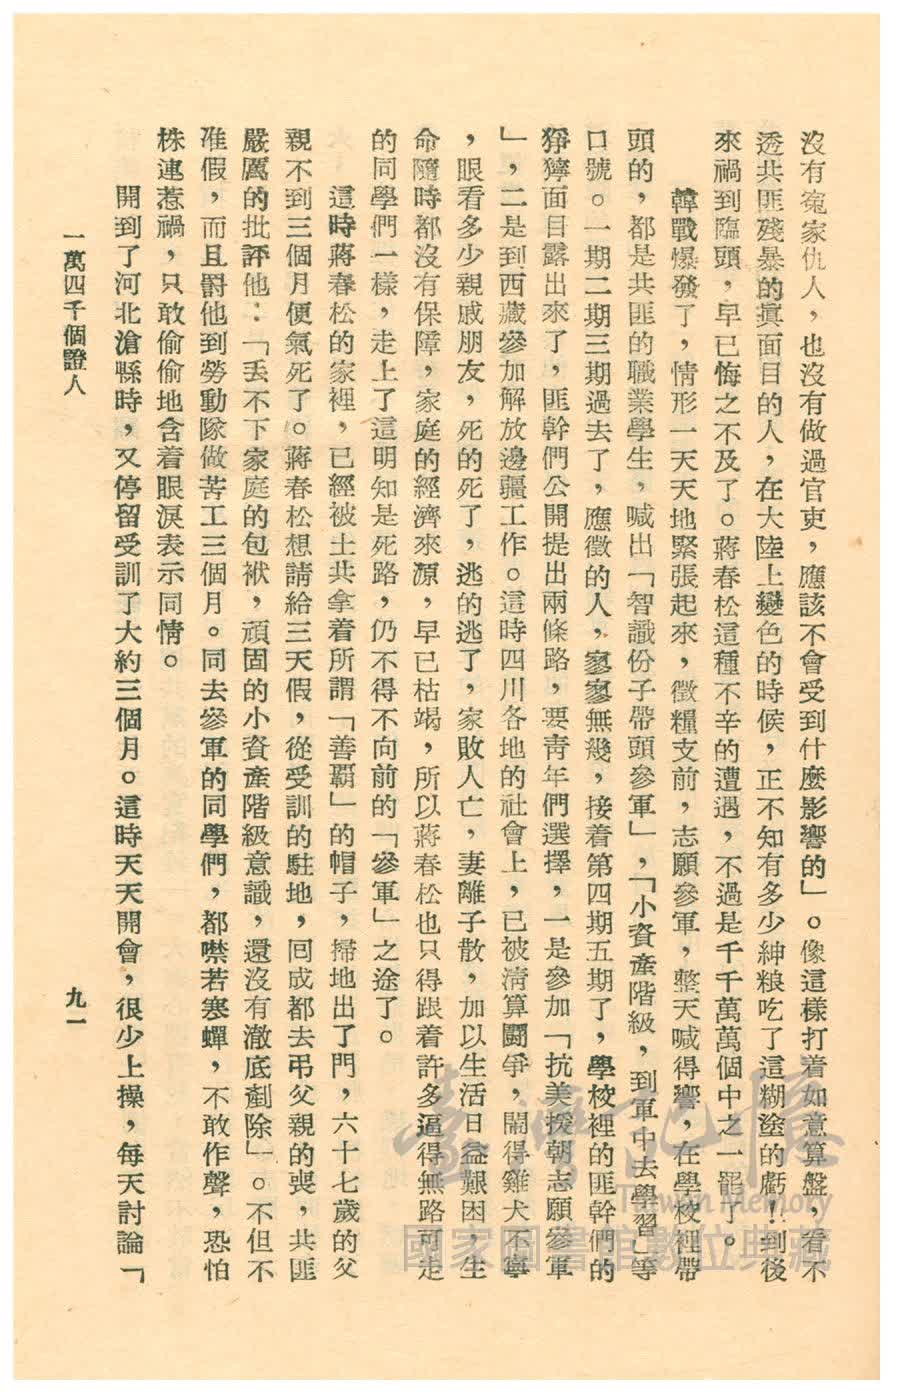 沒有寃家仇人，也沒有做過官吏，應該不會受到什麼影響的」。像這樣打着如意算盤，看不
透共匪殘暴的眞面目的人，在大陸上變色的時候，正不知有多少紳粮吃了這糊塗的虧！到後
來禍到臨頭，早已悔之不及了。蔣春松這種不幸的遭遇，不過是千千萬萬個中之一罷了。
韓戰爆發了，情形一天天地緊張起來，徵糧支前，志願參軍，整天喊得響，在學校裡帶
頭的，都是共匪的職業學生，喊出「智識份子帶頭參軍」，「小資產階級，到軍中去學習」等
口號。一期二期三期過去了，應徵的人，寥寥無幾，接着第四期五期了，學校裡的匪幹們的
猙獰面目露出來了，匪幹們公開提出兩條路，要靑年們選擇，一是參加「抗美援朝志願參軍
」，二是到西藏參加解放邊疆工作。這時四川各地的社會上，已被淸算鬪爭，鬧得雞犬不寧
，眼看多少親戚朋友，死的死了，逃的逃了，家敗人亡，妻離子散，加以生活日益艱困，生
命隨時都沒有保障，家庭的經濟來源，早已枯竭，所以蔣春松也只得跟着許多逼得無路可走
的同學們一樣，走上了這明知是死路，仍不得不向前的「參軍」之途了。
這時蔣春松的家裡，已經被土共拿着所謂「善覇」的帽子，掃地出了門，六十七歲的父
親不到三個月便氣死了。蔣春松想請給三天假，從受訓的駐地，囘成都去弔父親的喪，共匪
嚴厲的批評他：「丢不下家庭的包袱，頑固的小資產階級意識，還沒有澈底剷除」。不但不
准假，而且罰他到勞動隊做苦工三個月。同去參軍的同學們，都噤若寒蟬，不敢作聲，恐怕
株連惹禍，只敢偷偷地含着眼淚表示同情。
開到了河北滄縣時，又停留受訓了大約三個月。這時天天開會，很少上操，每天討論「
一萬四千個證人
九一
臺灣記憶
Taiwan Memory
國家圖書館數位典藏